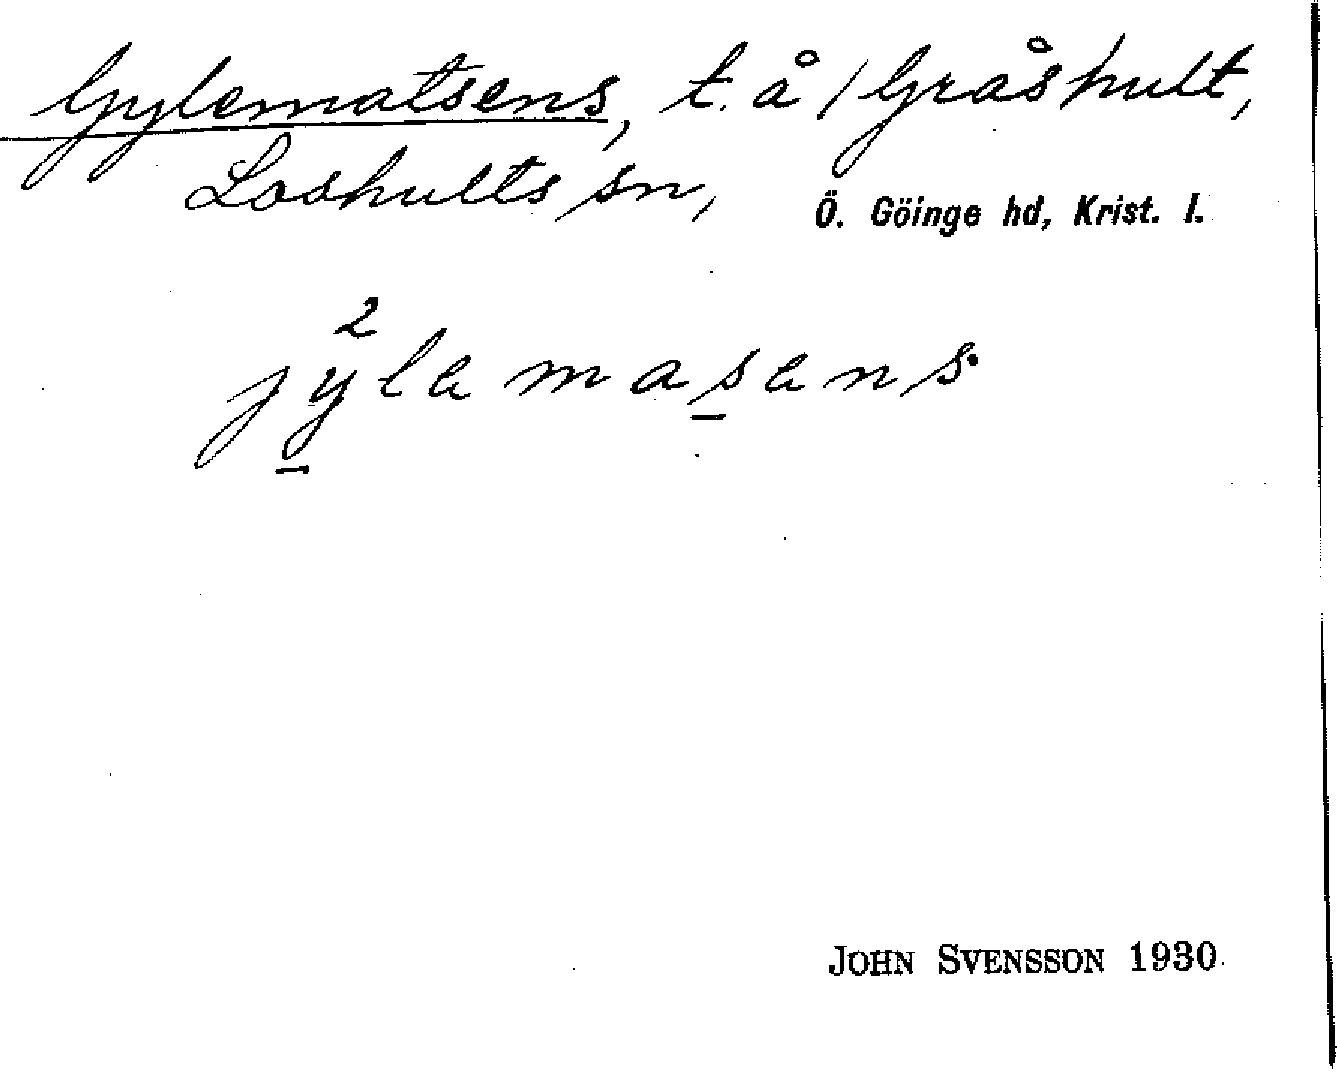 Gylematsens, t. å /Gråshult,
Loshults sn, Ö. Göinge hd, Krist. l.
2
jylamasans.
JOHN SVENSSON 1930